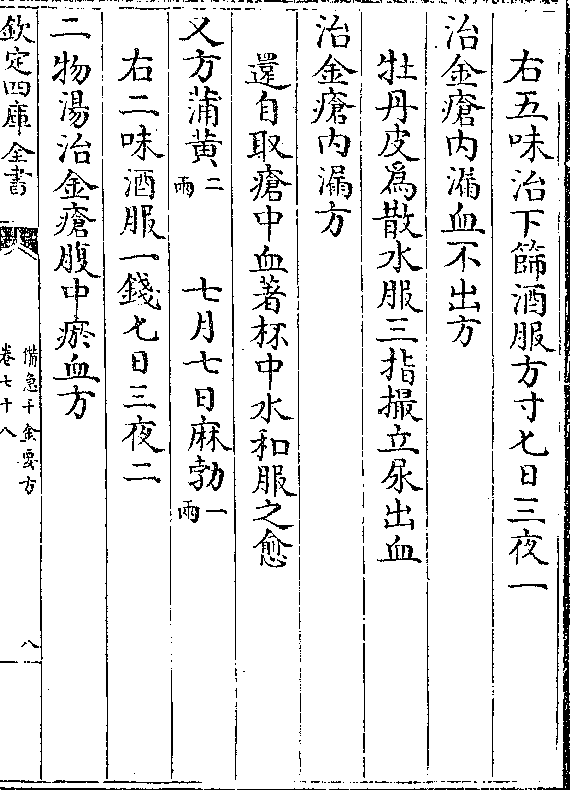 右五味治下篩酒服方寸匕日三夜一
治金瘡内漏血不出方
牡丹皮為散水服三指撮立尿出血
治金瘡内漏方
還自取瘡中血著杯中水和服之愈
又方蒲黄二兩 七月七日麻勃一兩
右二味酒服一錢匕日三夜二
二物湯治金瘡腹中瘀血方
欽定四庫全書
備急千金要方
卷七十八
八